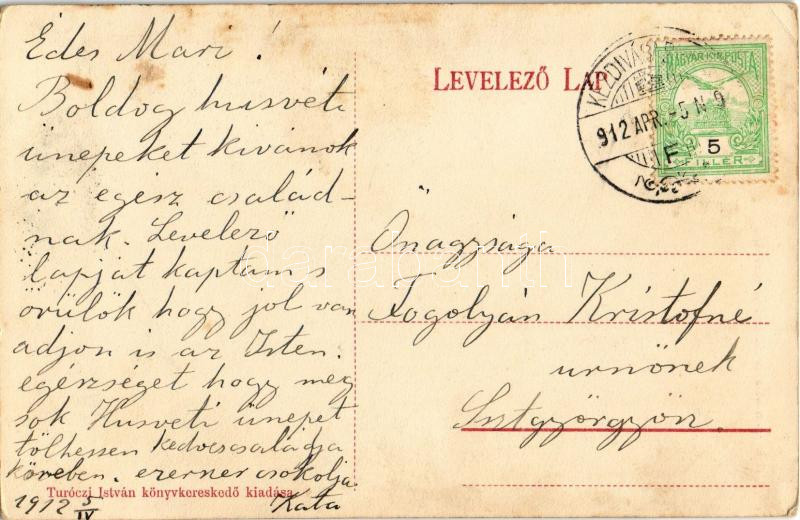 Édes Mari!
Boldog husvéti
ünepeket kivánok
az egész család-
nak. Levelező
lapját kaptam s
örülök hogy jol van
adjon is az Isten.
egészséget hogy meg
sok Husveti ünepet
tölhessen kedvescsaládja
köreben. ezerner csokolja
Kata
1912 5/IV
Turóczi István könyvkereskedő kiadása
LEVELEZŐ LAP
MAGYAR KIR. POSTA
5
FILLÉR
912 APR.-5 N 9
F
Önagysága
Fogolyán Kristofné
urnőnek
Sztgyörgyön.
arabanth